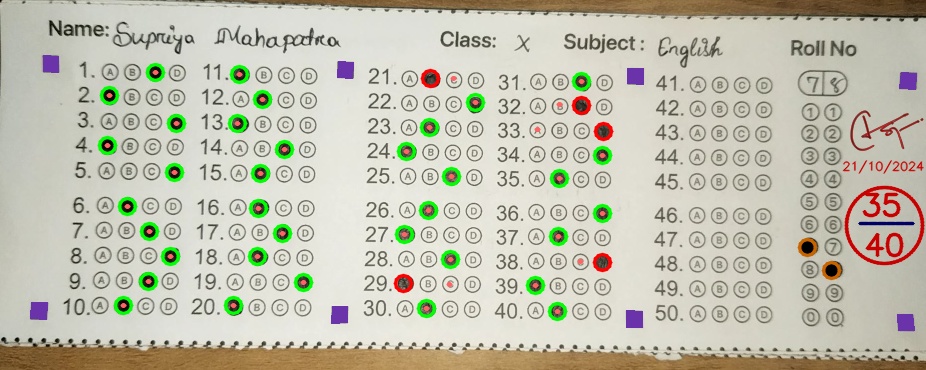 Name: Supriya Mahapatra Class: X Subject: English Roll No
78
1. A B D
2. B C D
3. A B C
4. B C D
5. A B C
6. A C D
7. A B D
8. A B C
9. A B D
10. A C D
11. B C D
12. A C D
13. B C D
14. A B D
15. A C D
16. A C D
17. A B D
18. A C D
19. A B C
20. B C D
21. A C D
22. A B C
23. A C D
24. B C D
25. A B D
26. A C D
27. B C D
28. A B D
29. B C D
30. A C D
31. A B D
32. A B D
33. A B C
34. A B C
35. A C D
36. A B C
37. A C D
38. A B C
39. B C D
40. A C D
41. A B C D
42. A B C D
43. A B C D
44. A B C D
45. A B C D
46. A B C D
47. A B C D
48. A B C D
49. A B C D
50. A B C D
1 1
2 2
3 3
4 4
5 5
6 6
7
8
9 9
0 0
21/10/2024
35
40